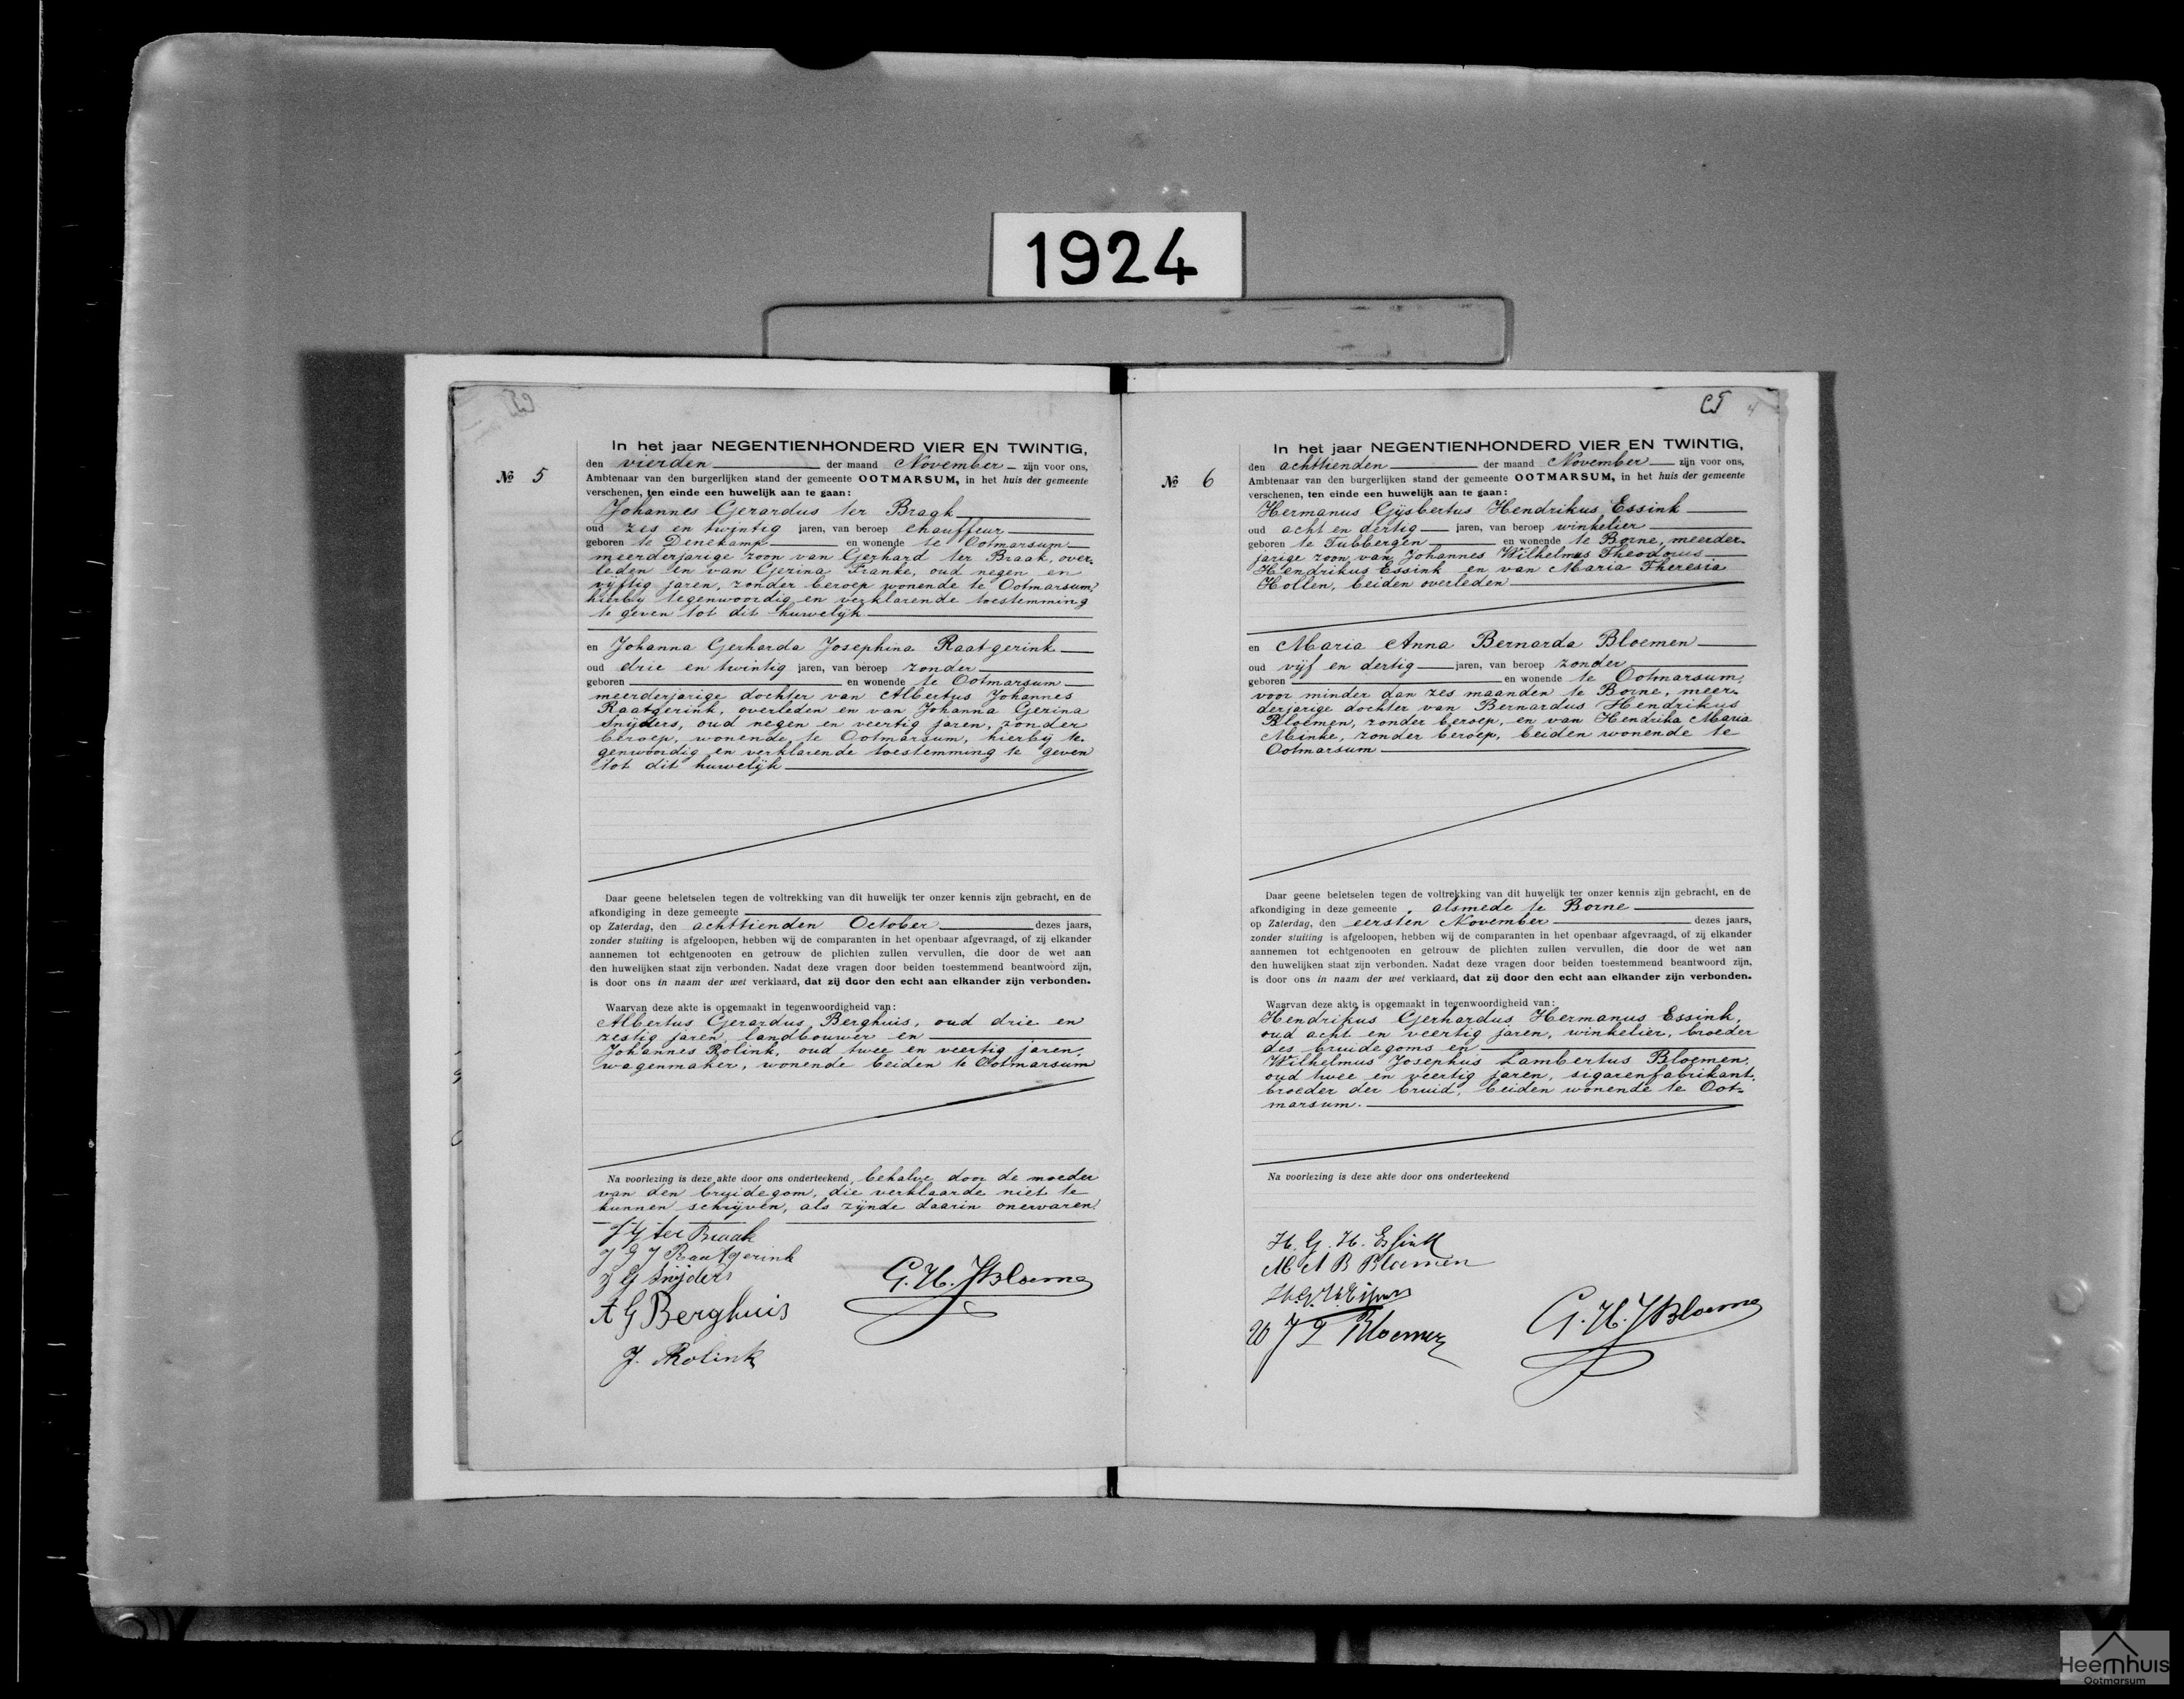 1924
In het jaar NEGENTIENHONDERD VIER EN TWINTIG,
den vierden der maand November zijn voor ons,
№ 5
Ambtenaar van den burgerlijken stand der gemeente OOTMARSUM, in het huis der gemeente
verschenen, ten einde een huwelijk aan te gaan:
Johannes Gerardus ter Braak
oud zes en twintig jaren, van beroep chauffeur
geboren te Denekamp en wonende te Ootmarsum
meerderjarige zoon van Gerhard ter Braak, over-
leden en van Gezina Franke, oud negen en
vijftig jaren, zonder beroep wonende te Ootmarsum,
hierbij tegenwoordig en verklarende toestemming
te geven tot dit huwelijk
en Johanna Gerharda Josephina Raatgerink
oud drie en twintig jaren, van beroep zonder
geboren en wonende te Ootmarsum
meerderjarige dochter van Albertus Johannes
Raatgerink, overleden en van Johanna Gezina
Snijders, oud negen en veertig jaren, zonder
beroep, wonende te Ootmarsum, hierbij te-
genwoordig en verklarende toestemming te geven
tot dit huwelijk
Daar geene beletselen tegen de voltrekking van dit huwelijk ter onzer kennis zijn gebracht, en de
afkondiging in deze gemeente
op Zaterdag, den achttienden October dezes jaars,
zonder stuiting is afgeloopen, hebben wij de comparanten in het openbaar afgevraagd, of zij elkander
aannemen tot echtgenooten en getrouw de plichten zullen vervullen, die door de wet aan
den huwelijken staat zijn verbonden. Nadat deze vragen door beiden toestemmend beantwoord zijn,
is door ons in naam der wet verklaard, dat zij door den echt aan elkander zijn verbonden.
Waarvan deze akte is opgemaakt in tegenwoordigheid van:
Albertus Gerardus Berghuis, oud drie en
zestig jaren, landbouwer en
Johannes Rolink, oud twee en veertig jaren,
wagenmaker, wonende beiden te Ootmarsum
Na voorlezing is deze akte door ons onderteekend, behalve door de moeder
van den bruidegom, die verklaarde niet te
kunnen schrijven, als zijnde daarin onervaren.
J G ter Braak
J G J Raatgerink
J G Snijders
A G Berghuis
J. Rolink
G. H. J Bloeme
In het jaar NEGENTIENHONDERD VIER EN TWINTIG,
den achttienden der maand November zijn voor ons,
№ 6
Ambtenaar van den burgerlijken stand der gemeente OOTMARSUM, in het huis der gemeente
verschenen, ten einde een huwelijk aan te gaan:
Hermanus Gijsbertus Hendrikus Essink
oud acht en dertig jaren, van beroep winkelier
geboren te Tubbergen en wonende te Borne, meerder-
jarige zoon van Johannes Wilhelmus Theodorus
Hendrikus Essink en van Maria Theresia
Hollen, beiden overleden
en Maria Anna Bernarda Bloemen
oud vijf en dertig jaren, van beroep zonder
geboren en wonende te Ootmarsum,
voor minder dan zes maanden te Borne, meer-
derjarige dochter van Bernardus Hendrikus
Bloemen, zonder beroep, en van Hendrika Maria
Minke, zonder beroep, beiden wonende te
Ootmarsum
Daar geene beletselen tegen de voltrekking van dit huwelijk ter onzer kennis zijn gebracht, en de
afkondiging in deze gemeente, alsmede te Borne
op Zaterdag, den eersten November dezes jaars,
zonder stuiting is afgeloopen, hebben wij de comparanten in het openbaar afgevraagd, of zij elkander
aannemen tot echtgenooten en getrouw de plichten zullen vervullen, die door de wet aan
den huwelijken staat zijn verbonden. Nadat deze vragen door beiden toestemmend beantwoord zijn,
is door ons in naam der wet verklaard, dat zij door den echt aan elkander zijn verbonden.
Waarvan deze akte is opgemaakt in tegenwoordigheid van:
Hendrikus Gerhardus Hermanus Essink,
oud acht en veertig jaren, winkelier, broeder
des bruidegoms en
Wilhelmus Josephus Lambertus Bloemen,
oud twee en veertig jaren, sigarenfabrikant,
broeder der bruid, beiden wonende te Oot-
marsum.
Na voorlezing is deze akte door ons onderteekend
H. G. H. Essink
M A B Bloemen
W J L Bloemen
G. H. J Bloeme
Heemhuis
Ootmarsum